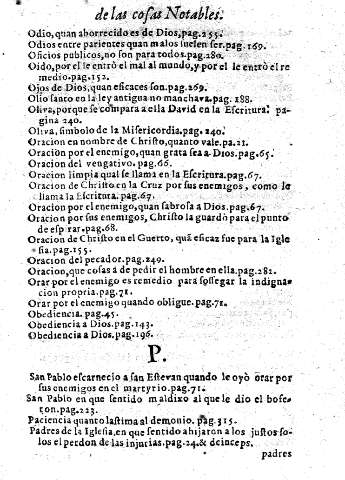 de las cosas Notables.
Odio, quan aborrecido es de Dios, pag. 255.
Odios entre parientes quan malos suelen ser. pag. 169.
Oficios publicos, no son para todos. pag. 280.
Oido, por el le entrò el mal al mundo, y por el le entrò el re
medio. pag. 152.
Ojos de Dios, quan eficaces son. pag. 269.
Olio santo en la ley antigua no manchava. pag. 188.
Oliva, porque se compara a ella David en la Escritura. pa
gina 240.
Oliva, simbolo de la Misericordia. pag. 240.
Oracion en nombre de Christo, quanto vale. pa. 21.
Oraciòn por el enemigo, quan grata sea a Dios. pag. 65.
Oracion del vengativo. pag. 66.
Oracion limpia qual se llama en la Escritura. pag. 67.
Oracion de Christo en la Cruz por sus enemigos, como le
llama la Escritura. pag. 67.
Oracion por el enemigo, quan sabrosa a Dios. pag. 67.
Oracion por sus enemigos, Christo la guardò para el punto
de esp rar. pag. 68.
Oracion de Christo en el Guerto, quã eficaz fue para la Igle
sia. pag. 155.
Oracion del pecador. pag. 249.
Oracion, que cosas à de pedir el hombre en ella. pag. 282.
Orar por el enemigo es remedio para sossegar la indigna-
cion propria. pag. 71.
Orar por el enemigo quando obligue. pag. 71.
Obediencia. pag. 45.
Obediencia a Dios. pag. 143.
Obediencia a Dios. pag. 196.
P.
San Pablo escarnecio a san Estevan quando le oyò orar por
sus enemigos en el martyrio. pag. 71.
San Pablo en que sentido maldixo al que le dio el bofe-
ton. pag. 223.
Paciencia quanto lastima al demonio. pag. 315.
Padres de la Iglesia, en que sentido ahijaron a los justos so-
los el perdon de las injurias. pag. 24. & deinceps.
padres